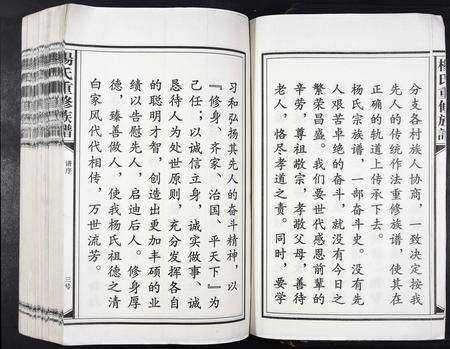 楊氏重修族譜
分支各村族人协商，一致决定按我
先人的传统作法重修族谱，使其在
正确的轨道上传承下去。
杨氏宗族谱，一部奋斗史。没有先
人艰苦卓绝的奋斗，就没有今日之
繁荣昌盛。我们要世代感恩前辈的
辛劳，尊祖敬宗，孝敬父母，善待
老人，恪尽孝道之责。同时，要学
习和弘扬其先人的奋斗精神，以
『修身、齐家、治国、平天下』为
己任；以诚信立身，诚实做事、诚
恳待人为处世原则，充分发挥各自
的聪明才智，创造出更加丰硕的业
绩以告慰先人，启迪后人。修身厚
德，臻善做人，使我杨氏祖德之清
白家风代代相传，万世流芳。
楊氏重修族譜
谱序
三号